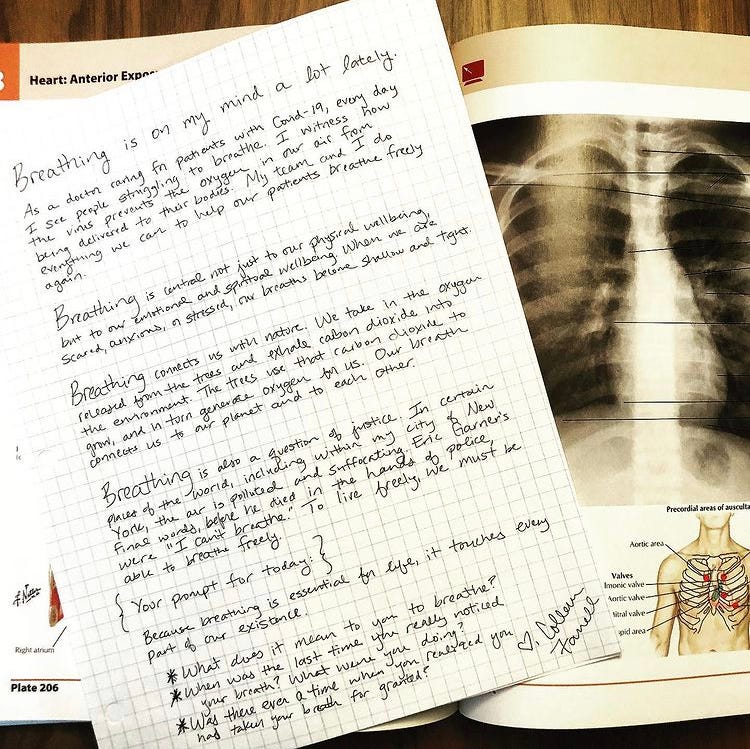 3
Heart: Anterior Expos
Breathing is on my mind a lot lately.
As a doctor caring for patients with Covid-19, every day
I see people struggling to breathe. I witness how
the virus prevents the oxygen in our air from
being delivered to their bodies. My team and I do
everything we can to help our patients breathe freely
again.
Breathing is central not just to our physical wellbeing,
but to our emotional and spiritual wellbeing. When we are
scared, anxious, or stressed, our breaths become shallow and tight.
Breathing connects us with nature. We take in the oxygen
released from the trees and exhale carbon dioxide into
the environment. The trees use that carbon dioxide to
grow, and in turn generate oxygen for us. Our breath
connects us to our planet and to each other.
Breathing is also a question of justice. In certain
places of the world, including within my city of New
York, the air is polluted and suffocating. Eric Garner's
final words, before he died in the hands of police,
were "I can't breathe." To live freely, we must be
able to breathe freely.
{Your prompt for today:}
Because breathing is essential for life, it touches every
part of our existence.
* What does it mean to you to breathe?
* When was the last time you really noticed
your breath? What were you doing?
* Was there ever a time when you realized you
had taken your breath for granted?
♡, Colleen
Farrell
Right atrium
Plate 206
Precordial areas of ausculta
Aortic area
Valves
lmonic valve
Aortic valve
itral valve
spid area